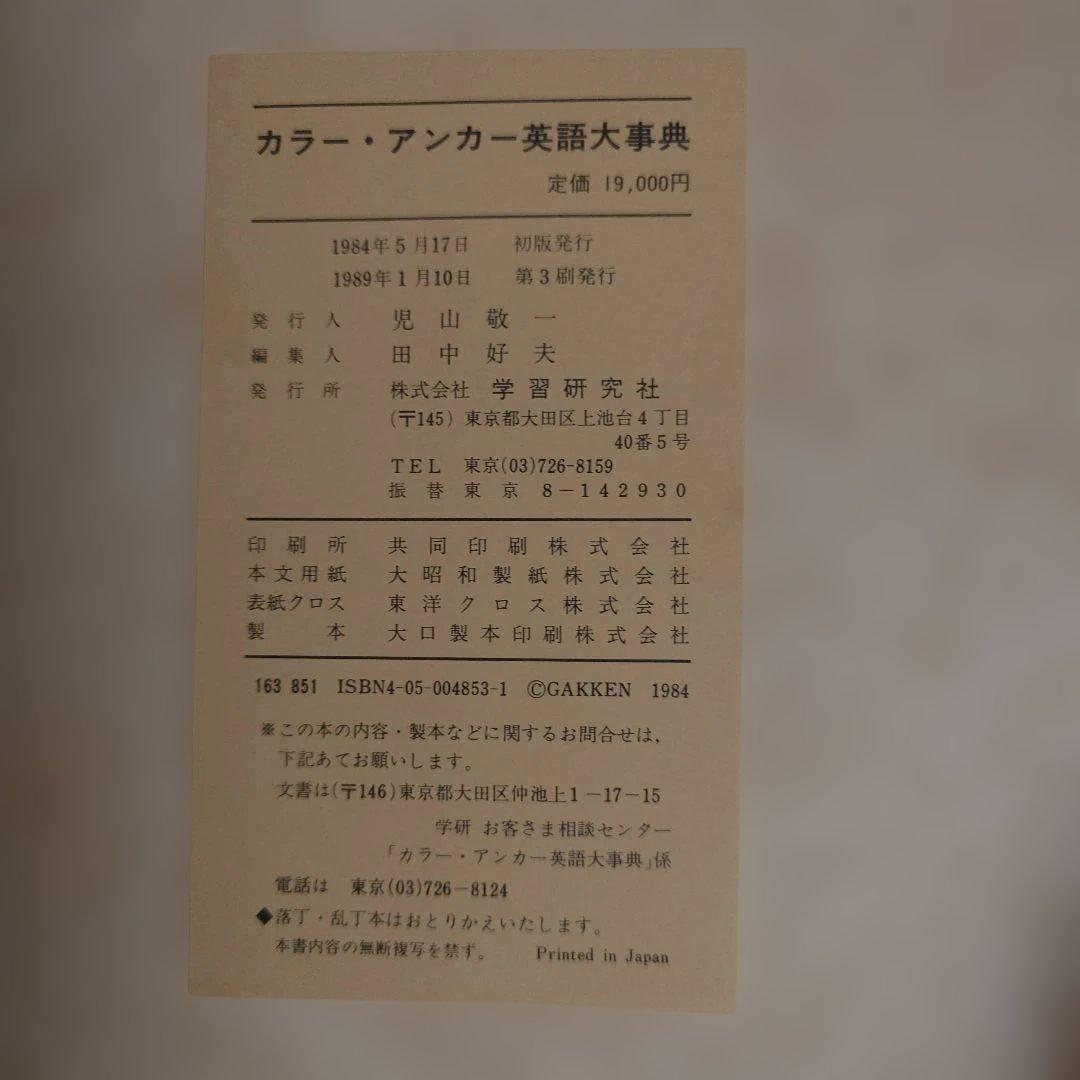 カラー・アンカー英語大事典
定価 19,000円
1984年5月17日 初版発行
1989年1月10日 第3刷発行
発行人 児山敬一
編集人 田中好夫
発行所 株式会社 学習研究社
(〒145) 東京都大田区上池台4丁目
40番5号
TEL 東京(03)726-8159
振替東京 8-142930
印刷所 共同印刷株式会社
本文用紙 大昭和製紙株式会社
表紙クロス 東洋クロス株式会社
製本 大口製本印刷株式会社
163 851 ISBN4-05-004853-1 ©GAKKEN 1984
※この本の内容・製本などに関するお問合せは,
下記あてお願いします。
文書は(〒146)東京都大田区仲池上1-17-15
学研 お客さま相談センター
「カラー・アンカー英語大事典」係
電話は 東京(03)726-8124
◆落丁・乱丁本はおとりかえいたします。
本書内容の無断複写を禁ず。 Printed in Japan